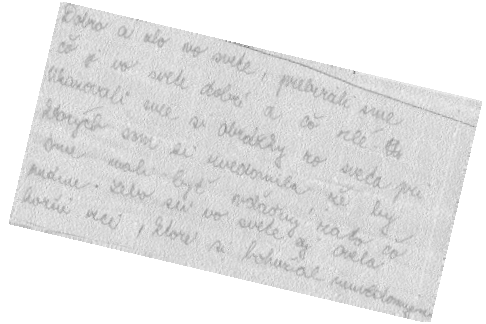 Dobro a zlo vo svete, preberali sme
čo je vo svete dobré a čo zlé.
Ukazovali sme si obrázky zo sveta pri
ktorých som si uvedomila že by
sme mali byť vďační, za to čo
máme. Lebo sú vo svete aj oveľa
horšie veci, ktoré si bohužiaľ neuvedomujeme